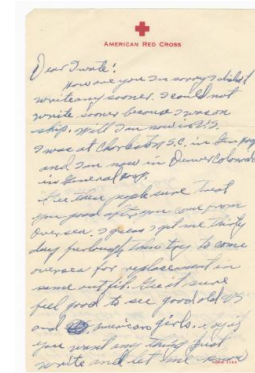 AMERICAN RED CROSS
Dear
How are you I'm sorry I didn't
write any sooner. I could not
write sooner because I was on
ship. Well I am now in U.S.
I was at Charleston S.C. in
and I am now in Denver Colorado
in General Hosp.
these people sure treat
you good after you come from
oversea. I guess I get me thirty
day furlough then try to come
oversea for replacement in
same outfit. sure
feel good to see good old US
and American girls. if
you want any thing just
write and let me know